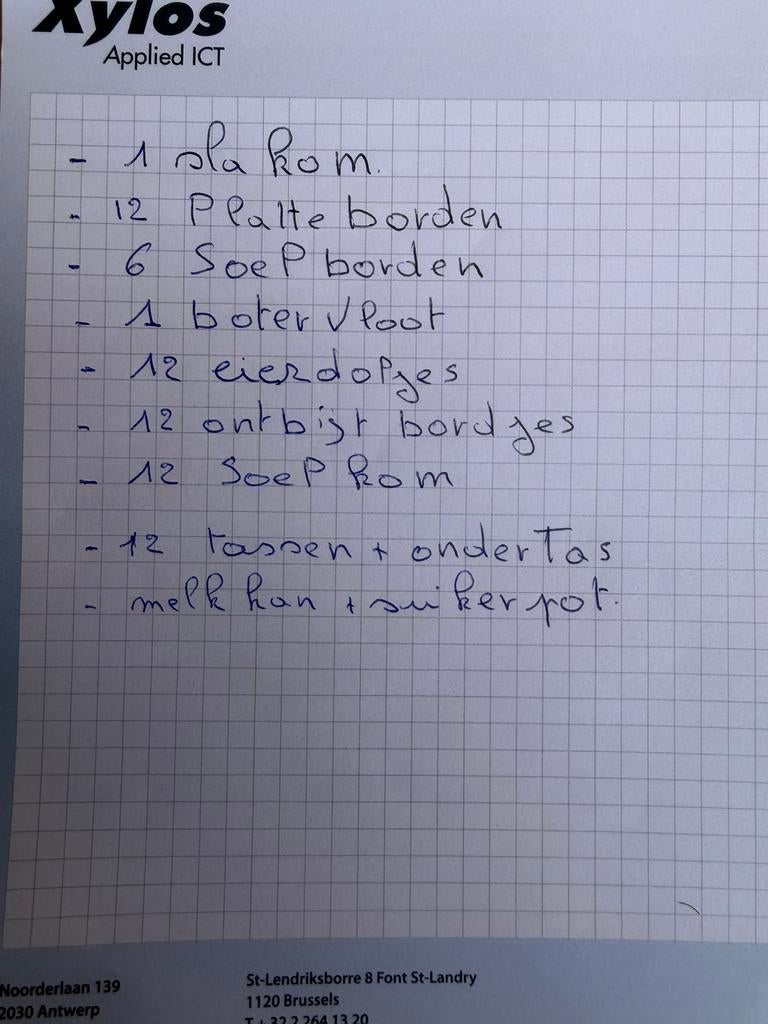 Xylos
Applied ICT
- 1 sla kom.
- 12 Platte borden
- 6 SoeP borden
- 1 boter vloot
- 12 eierdopjes
- 12 ontbijt bordjes
- 12 SoeP kom
- 12 tassen + onderTas
- melk kan + suiker pot.
Noorderlaan 139
2030 Antwerp
St-Lendriksborre 8 Font St-Landry
1120 Brussels
T + 32 2 264 13 20